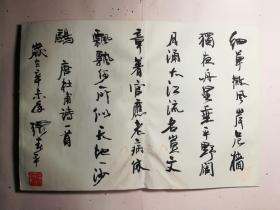 細草微風岸危檣
獨夜舟星垂平野闊
月涌大江流名豈文
章著官應老病休
飄飄何所似天地一沙
鷗 唐杜甫詩一首
歲在辛未年